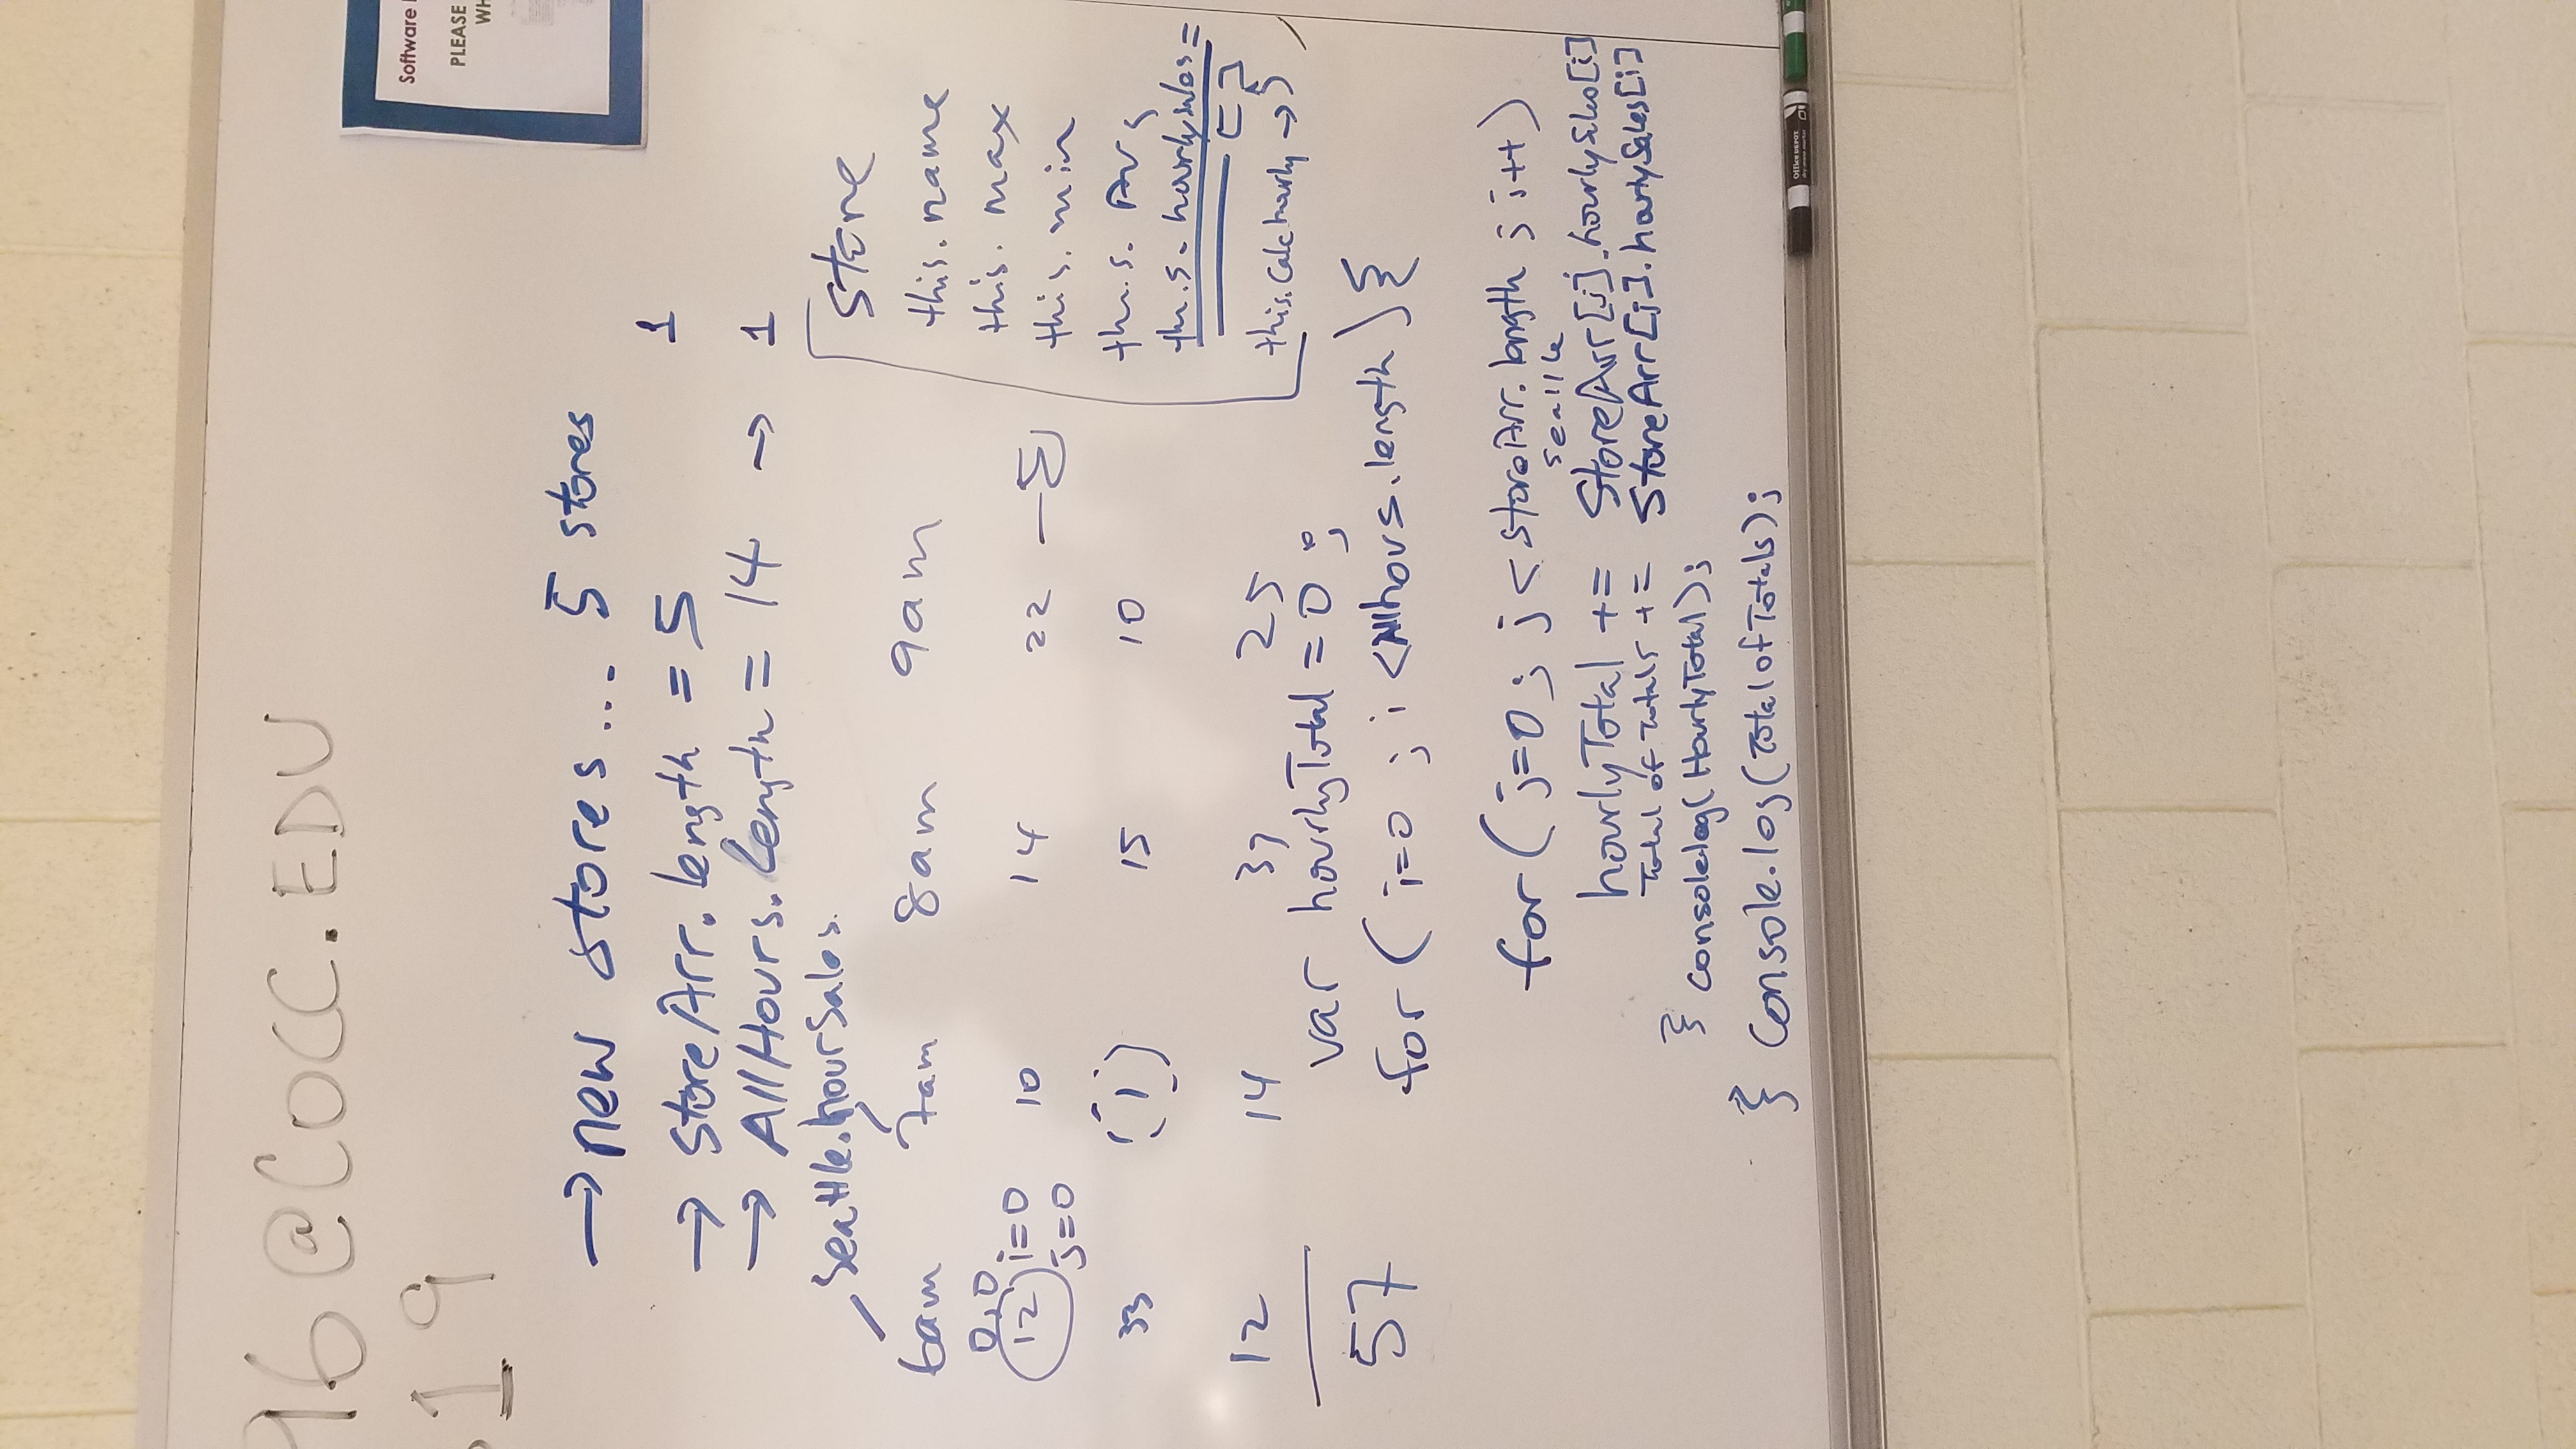 96@COCC.EDU
19
Software
PLEASE
WH
→ new stores... 5 stores
→ StoreArr.length = 5 1
→ AllHours.Length = 14 → 1
Seattle.hourSales.
6am 7am 8am 9am
0,0
12 i=0 10 14 22 — Σ
j=0
33 1 15 10
12 14 37 25
57
store
this.name
this.max
this.min
this.Avg
this.hourlysales =
[ ]
this.Calchourly →
var hourlyTotal = 0;
for ( i=0 ; i <Allhours.length ) {
for ( j=0; j < storeArr.length ; i++)
seattle
hourlyTotal += StoreArr[j].hourlySales[i]
Total of Totals += StoreArr[j].hourlySales[i]
} console.log(HourlyTotal);
} Console.log(TotalofTotals);
Office DEPOT